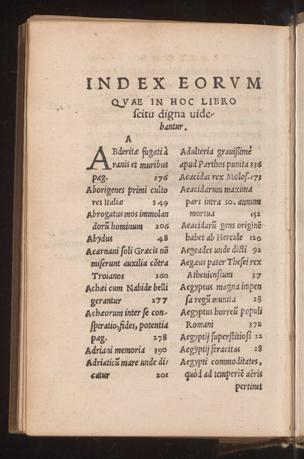 INDEX EORVM
QVAE IN HOC LIBRO
scitu digna uide-
bantur.
A
ABderitæ fugati à
ranis et muribus
pag. 176
Aborigenes primi culto
res Italiæ 349
Abrogatus mos immolan
dorũ hominum 206
Abydus 48
Acarnani soli Græcis nõ
miserunt auxilia cõtra
Troianos 260
Achæi cum Nabide belli
gerantur 277
Achæorum inter se con-
spiratio, fides, potentia
pag. 278
Adriani memoria 390
Adriaticũ mare unde di
catur 201
Adulteria grauissimè
apud Parthos punita 336
Aeacidas rex Molos. 173
Aeacidarum maxima
pars intra 30. annum
mortua 152
Aeacidarũ gens originẽ
habet ab Hercule 120
Aegeades unde dicti 92
Aegeus pater Thesei rex
Atheniensium 37
Aegyptus magna impen
sa regũ munita 28
Aegyptus horreũ populi
Romani 372
Aegyptij superstitiosi 12
Aegyptij feracitas 28
Aegypti commoditates,
quòd ad temperiẽ aëris
pertinet